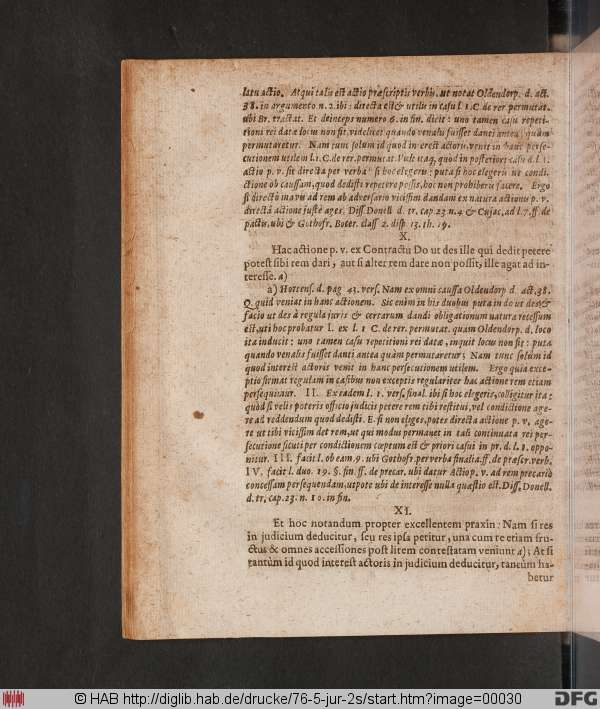 latu actio. Atqui talis est actio præscriptis verbis, ut notat Oldendorp. d. act.
38. in argumento n. 2. ibi: directa est & utilis in casu l. 1. C de rer permutat.
ubi Br. tractat. Et deinceps numero 6. in fin. dicit: uno tamen casu repeti-
tioni rei datæ locus non sit, videlicet quando venalis fuisset danti antea, quàm
permutaretur. Nam tunc solum id quod interest actoris, venit in hanc perse-
cutionem utilem l. 1. C. de rer. permutat. Vult itaq, quod in posteriori casu d. l. 1.
actio p. v. sit directa per verba si hoc elegeris: puta si hoc elegeris ut condi-
ctione ob caussam, quod dedisti repetere possis, hoc non prohiberis facere. Ergo
si directò mavis ad rem ab adversario vicissim dandam ex natura actionis p. v.
directâ actione justè ages. Diss. Donell d. tr. cap. 23 n. 4 & Cujac. ad l. 7. ff. de
pactis, ubi & Gothofr. Bocer. class 2. disp 13. th. 19.
X.
Hac actione p. v. ex Contractu Do ut des ille qui dedit petere
potest sibi rem dari, aut si alter rem dare non possit, ille agat ad in-
teresse. a)
a) Hottens. d. pag 43. vers. Nam ex omni caussa Oldendorp d. act. 38.
Q. quid veniat in hanc actionem. Sic enim in his duobus puta in do ut des &
facio ut des à regula juris & certarum dandi obligationum natura recessum
est, uti hoc probatur l. ex l. 1 C. de rer. permutat. quam Oldendorp. d. loco
ita inducit: uno tamen casu repetitioni rei datæ, inquit locus non sit: puta
quando venalis fuisset danti antea quàm permutaretur; Nam tunc solum id
quod interest actoris venit in hanc persecutionem utilem. Ergo quia exce-
ptio firmat regulam in casibus non exceptis regulariter hac actione rem etiam
persequimur. II. Ex eadem l. 1. vers. final. ibi si hoc elegeris, colligitur ita:
quòd si velis poteris officio judicis petere rem tibi restitui, vel condictione age-
re ad reddendum quod dedisti. E. si non eliges, potes directa actione p. v. age-
re ut tibi vicissim det rem, ut qui modus permanet in tali continuata rei per-
secutione sicuti per condictionem cœptum est & priori casui in pr. d. l. 1. oppo-
nitur. III. facit l. ob eam. 9. ubi Gothofr. per verba finalia. ff. de præscr. verb.
IV. facit l. duo. 19. §. fin. ff. de precar. ubi datur Actio p. v. ad rem precariò
concessam persequendam, utpote ubi de interesse nulla quæstio est. Diss. Donell.
d. tr. cap. 23. n. 10. in fin.
XI.
Et hoc notandum propter excellentem praxin: Nam si res
in judicium deducitur, seu res ipsa petitur, una cum re etiam fru-
ctus & omnes accessiones post litem contestatam veniunt a); At si
tantùm id quod interest actoris in judicium deducitur, tantùm ha-
betur
© HAB http://diglib.hab.de/drucke/76-5-jur-2s/start.htm?image=00030
DFG